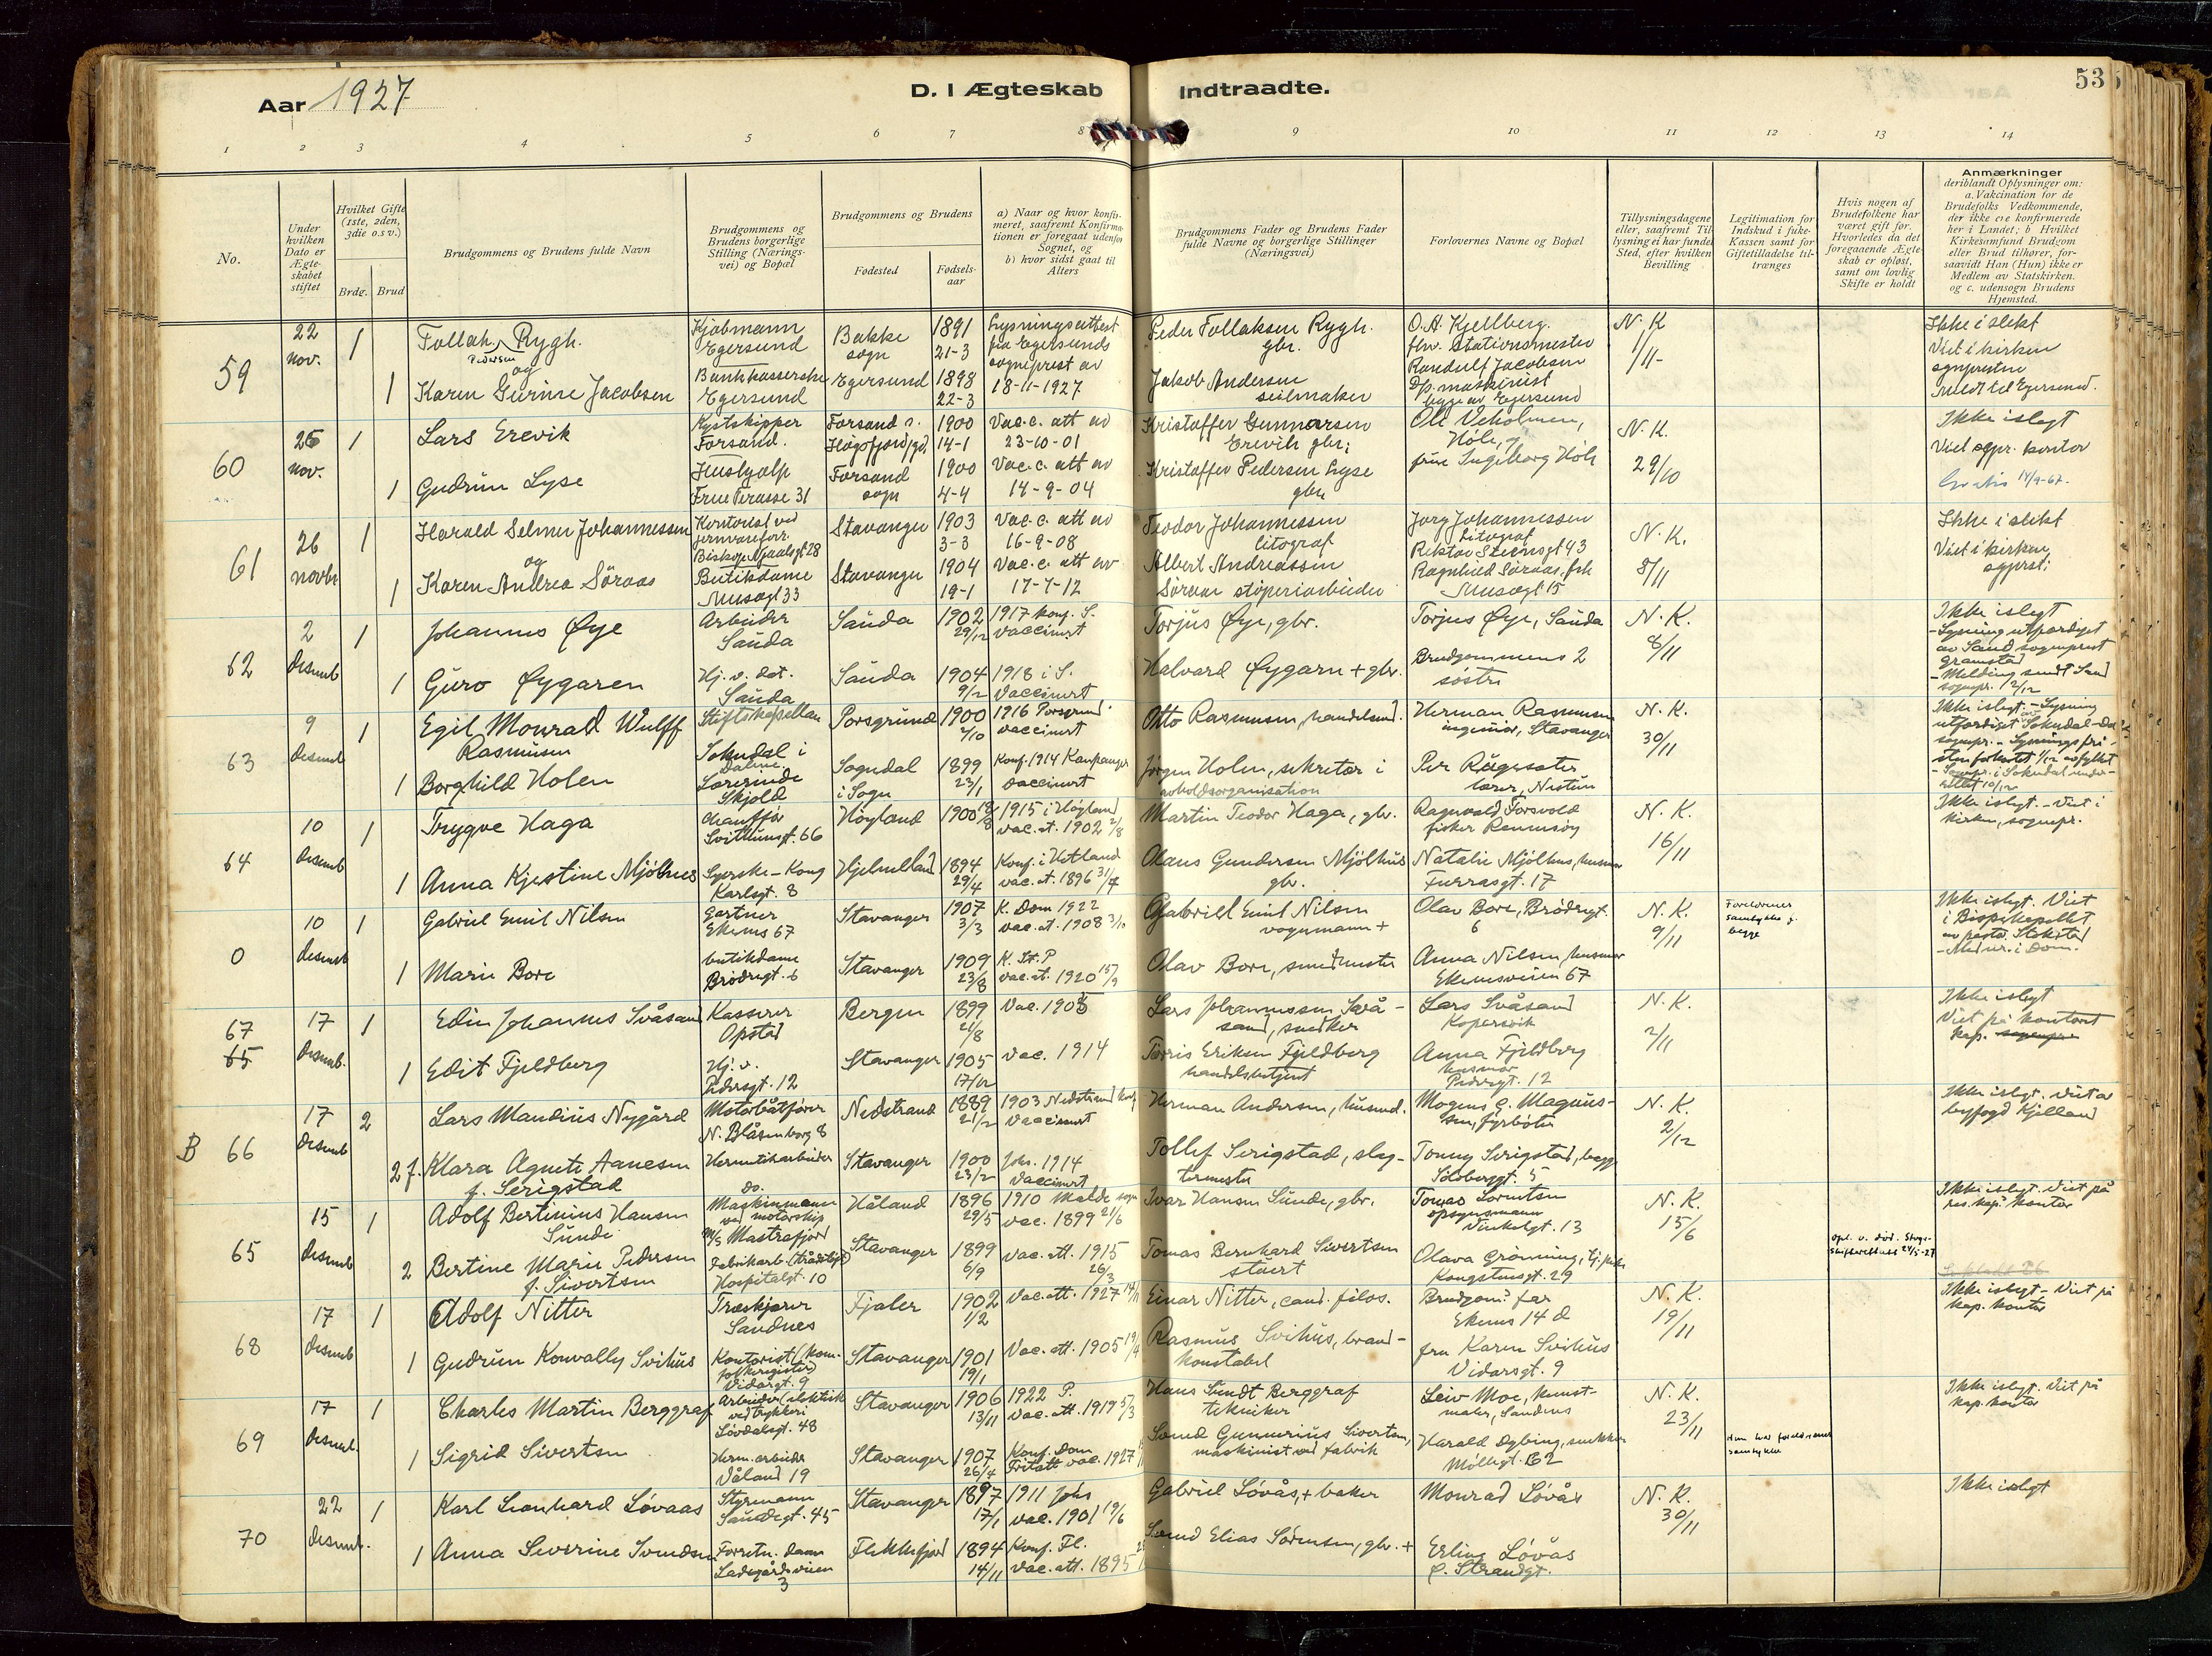 Aar 1927
D. I Ægteskab Indtraadte.
53
1 2 3 4 5 6 7 8 9 10 11 12 13 14
No.
Under hvilken Dato er Ægteskabet stiftet
Hvilket Gifte (1ste, 2den, 3die o.s.v.)
Brdg. Brud
Brudgommens og Brudens fulde Navn
Brudgommens og Brudens borgerlige Stilling (Næringsvei) og Bopæl
Brudgommens og Brudens
Fødested
Fødselsaar
a) Naar og hvor konfirmeret, saafremt Konfirmationen er foregaat udenfor Sognet, og
b) hvor sidst gaat til Alters
Brudgommens Fader og Brudens Fader fulde Navne og borgerlige Stillinger (Næringsvei)
Forlovernes Navne og Bopæl
Tillysningsdagene eller, saafremt Tillysning ei har fundet Sted, efter hvilken Bevilling
Legitimation for Indskud i fuke-Kassen samt for Giftetilladelse tiltrænges
Hvis nogen af Brudefolkene har været gift før. Hvorledes da det foregaaende Ægteskab er opløst, samt om lovlig Skifte er holdt
Anmærkninger
deriblandt Oplysninger om: a. Vakcination for de Brudefolks Vedkommende, der ikke ere konfirmerede her i Landet; b Hvilket Kirkesamfund Brudgom eller Brud tilhører, forsaavidt Han (Hun) ikke er Medlem av Statskirken. og c. udensogn Brudens Hjemsted.
59
22 nov.
1
Follak. Pedersen Rygh.
Kjøbmann Egersund
Bakke sogn
1891 21-3
Lysningsattest fra Egersunds sogneprest av 18-11-1927
Peder Follaksen Rygh. gbr.
O.A. Kjellberg. fhv. Stationsmester
N.K 1/11-
Ikke i slekt
Viet i kirken
sognprestne
meldt til Egersund.
og
1
Karen Gurine Jacobsen
Bankkasserske Egersund
Egersund
1898 22-3
Jakob Andersen seilmaker
Randulf Jacobsen maskinist begge av Egersund
60
26 nov.
1
Lars Erevik
Kystskipper Forsand.
Forsand s.
1900 14-1
Vac.c. att av 23-10-01
Kristoffer Gunnarsen Erevik gbr;
Ole Veholmen, Høle,
N.K. 29/10
Ikke i slegt
Viet sgpr. kontor
Gratis 14/9-67.
1
Gudrun Lyse
Hushjælp
Frue Terasse 31
Forsand sogn
1900 4-4
Vac.c. att av 14-9-04
Kristoffer Pedersen Lyse gbr
frue Ingeborg Høle
61
26 novbr
1
Harald Selmer Johannessen
Kontorist ved jernvareforr.
Stavanger
1903 3-3
Vac.c. att av 16-9-08
Teodor Johannessen litograf
Jørg Johannessen Litograf
N.K. 8/11
Ikke i slekt
Viet i kirken,
og
1
Karen Andrea Söraas
Butikdame Musægt 33
Stavanger
1904 19-1
Vac.c. att av 17-7-12
Albert Andreassen Söraas støperiarbeider
Ragnhild Söraas, frk Musægt 15
62
2 desemb
1
Johannes Øye
Arbeider Sauda
Sauda
1902 29/12
1917 konf. S. vaccinert
Torjus Øye, gbr.
Torjus Øye, Sauda
N.K. 8/11
Ikke i slegt
- Lysning utfærdiget
av Sand sogneprest
- Melding sendt Sand
sognepr. 12/12
1
Guro Øygaren
Hj. v. det. Sauda
Sauda
1904 9/2
1918 i S. Vaccinert
Halvard Øygarn + gbr.
Brudgommens 2 søstre
63
9 desemb
1
Egil Monrad Wulff Rasmusen
Stiftskapellan Sokndal i Dalene.
Porsgrund
1900 2/10
1916 Porsgrund. vaccinert
Otto Rasmusen, handelsmd.
Herman Rasmusen ingeniør, Stavanger
N.K. 30/11
Ikke i slegt - Lysning
utfærdiget Sokndal-
1
Borghild Holen
Lærerinde Skjold
Sogndal i Sogn
1899 23/1
Konf. 1914 Kaupanger vaccinert
Jørgen Holen, sekretær i avholdsorganisation
Per
lærer, Nestun
64
10 desemb
1
Trygve Haga
chauffør
Høyland
1900
1915 i Høyland vac. at. 1902 2/8
Martin Teodor Haga, gbr.
Ragnvald Forsvold fisker Rennesøy
N.K. 16/11
Ikke i slegt. - Viet i
kirken, sognepr.
1
Anna Kjestine Mjölhus
Syerske - Kong Karlsgt. 8
Hjelmeland
1894 29/4
Konf. i Hetland vac. at. 1896
Olaus Gundersen Mjölhus gbr.
Natalie Mjölhus, husmor Furrasgt. 17
0
10 desemb
1
Gabriel Emil Nilsen
Gartner Ekenes 67
Stavanger
1907 3/3
K. Dom 1922 vac. at. 1908
Gabriel Emil Nilsen vognmann +
Olav Bore, Brødregt. 6
N.K. 9/11
Foreldrenes samtykke f. begge
Ikke i slegt. Viet
i Bispekapellet
1
Marie Bore
butikdame Brødregt. 6
Stavanger
1909 23/8
K. St.P vac. at. 1920
Olav Bore, smedmester
Anna Nilsen, husmor Ekenesveien 67
67
65
17 desemb.
1
Edin Johannes Svåsand
Kasserer Opstad
Bergen
1899 21/8
Vac. 1905
Lars Johannessen Svåsand, snedker
Lars Svåsand Kopervik
N.K. 2/11
Ikke i slegt
Viet på kontoret
kap. sognepr
1
Edit Fjeldberg
Hj. v. Pedersgt. 12
Stavanger
1905 17/12
vac. 1914
Tørris Eriksen Fjeldberg handelsbetjent
Anna Fjeldberg husmor Pedersgt. 12
B 66
17 desemb
2
Lars Mandius Nygård
Motorbåtfører N. Blåsenborg 8
Nedstrand
1889 21/2
1903 Nedstrand konf vaccinert
Herman Andersen, husmd.
Mogens C. Magnussen, fyrbøter
N.K. 2/12
Ikke i slegt. Viet av
byfogd Kjelland
2 f.
Klara Agnete Aanesen f. Serigstad
Hermetikarbeider do.
Stavanger
1900 23/2
Johs. 1914 Vaccinert
Tollef Serigstad, slagtermester
Tonny Serigstad, begge
65
15 desemb
1
Adolf Bertinius Hansen Sunde
Maskinmann ved motorskip M/S Mastrafjord
Håland
1896 29/5
1910 Malde sogn vac. 1899 21/6
Ivar Hansen Sunde, gbr.
Tomas Sørentsen opsynsmann Vinkelgt. 13
N.K. 15/6
Ikke i slegt. Viet på
res. kap. kontor
2
Bertine Marie Pedersen f. Sivertsen
Hospitalgt. 10
Stavanger
1899 6/9
Vac. att. 1915 26/3
Tomas Bernhard Sivertsen stuert
Olava Grönning, Kongstensgt. 29
68
17 desemb
1
Adolf Nitter
Træskjærer Sandnes
Fjaler
1902 1/2
Vac. att. 1927
Einar Nitter, cand. filos.
Brudgoms far Ekenes 14 d
N.K. 19/11
Ikke i slegt - Viet på
kap. kontor
1
Gudrun Konvally Svihus
Kontorist (kom. folkeregister) Vidarsgt. 9
Stavanger
1901 19/1
Vac. att. 1905
Rasmus Svihus, brandkonstabel
fru Karen Svihus Vidarsgt. 9
69
17 desemb.
1
Charles Martin Berggraf
Løvdalsgt. 48
Stavanger
1906 13/11
1922 P. Vac. att. 1919 5/3
Hans Sundt Berggraf tekniker
Leiv Moe, kunstmaler, Sandnes
N.K. 23/11
Hun har foreldrenes samtykke
Ikke i slegt. Viet på
kap. kontor
1
Sigrid Sivertsen
Herm. arbeider Våland 19
Stavanger
1907 26/4
Konf. Dom Fritatt vac. 1927
Svend Gunnerius Sivertsen, maskinist ved fabrik
Harald Dybing, snekker Møllegt. 62
70
22 desemb.
1
Karl Leonhard Løvaas
Styrmann Sandegt. 45
Stavanger
1897 17/1
1911 Johs vac. 1901 19/6
Gabriel Løvås, + baker
Monrad Løvås
N.K. 30/11
Ikke i slegt
1
Anna Severine Svendsen
Forretn. dame Ladegårdsveien 3
Flekkefjord
1894 14/11
Konf. Fl. Vac. att. 1895
Svend Elias Sörensen, gbr. +
Erling Løvås Ø. Strandgt.